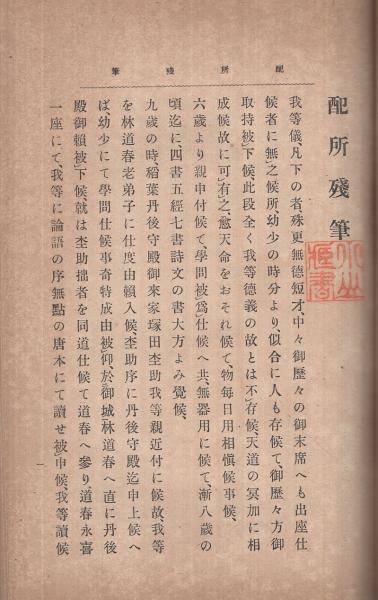 配所殘筆
配所殘筆
我等儀、凡下の者、殊更無德短才、中々御歷々の御末席へも出座仕
候者に無㆑之候所、幼少の時分より、似合に人も存候て、御歷々方御
取持被㆑下候、此段全く我等德義の故とは不㆑存候、天道の冥加に相
成候故に可㆑有㆑之、愈天命をおそれ候て、物每日用相愼候事候、
六歲より親申付候て、學問被㆑爲㆑仕候へ共、無器用に候て、漸八歲の
頃迄に四書五經七書詩文の書大方よみ覺候、
九歲の時、稻葉丹後守殿御來家塚田杢助、我等親近付に候故、我等
を林道春老弟子に仕度由賴入候、杢助序に丹後守殿迄申上候へ
ば、幼少にて學問仕候事奇特成由被㆑仰、於㆓御城㆒林道春へ直に丹後
殿御賴被㆑下候、就㆑是杢助拙者を同道仕候て道春へ參り、道春永喜
一座にて、我等に論語の序無點の唐本にて讀せ被㆑申候、我等讀候
一